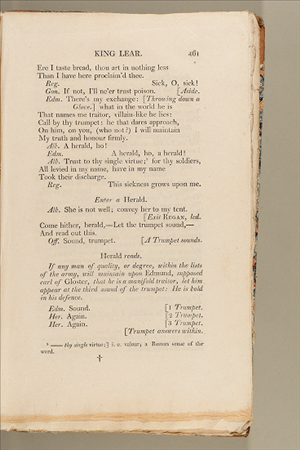 KING LEAR. 461
Ere I taste bread, thou art in nothing less
Than I have here proclaim'd thee.
Reg. Sick, O, sick!
Gon. If not, I'll ne'er trust poison. [Aside.
Edm. There's my exchange: [Throwing down a
Glove.] what in the world he is
That names me traitor, villain-like he lies:
Call by thy trumpet: he that dares approach,
On him, on you, (who not?) I will maintain
My truth and honour firmly.
Alb. A herald, ho!
Edm. A herald, ho, a herald!
Alb. Trust to thy single virtue;¹ for thy soldiers,
All levied in my name, have in my name
Took their discharge.
Reg. This sickness grows upon me.
Enter a Herald.
Alb. She is not well; convey her to my tent.
[Exit REGAN, led.
Come hither, herald,—Let the trumpet sound,—
And read out this.
Off. Sound, trumpet. [A Trumpet sounds.
Herald reads.
If any man of quality, or degree, within the lists
of the army, will maintain upon Edmund, supposed
earl of Gloster, that he is a manifold traitor, let him
appear at the third sound of the trumpet: He is bold
in his defence.
Edm. Sound. [1 Trumpet.
Her. Again. [2 Trumpet.
Her. Again. [3 Trumpet.
[Trumpet answers within.
¹ —— thy single virtue;] i. e. valour; a Roman sense of the
word.
†